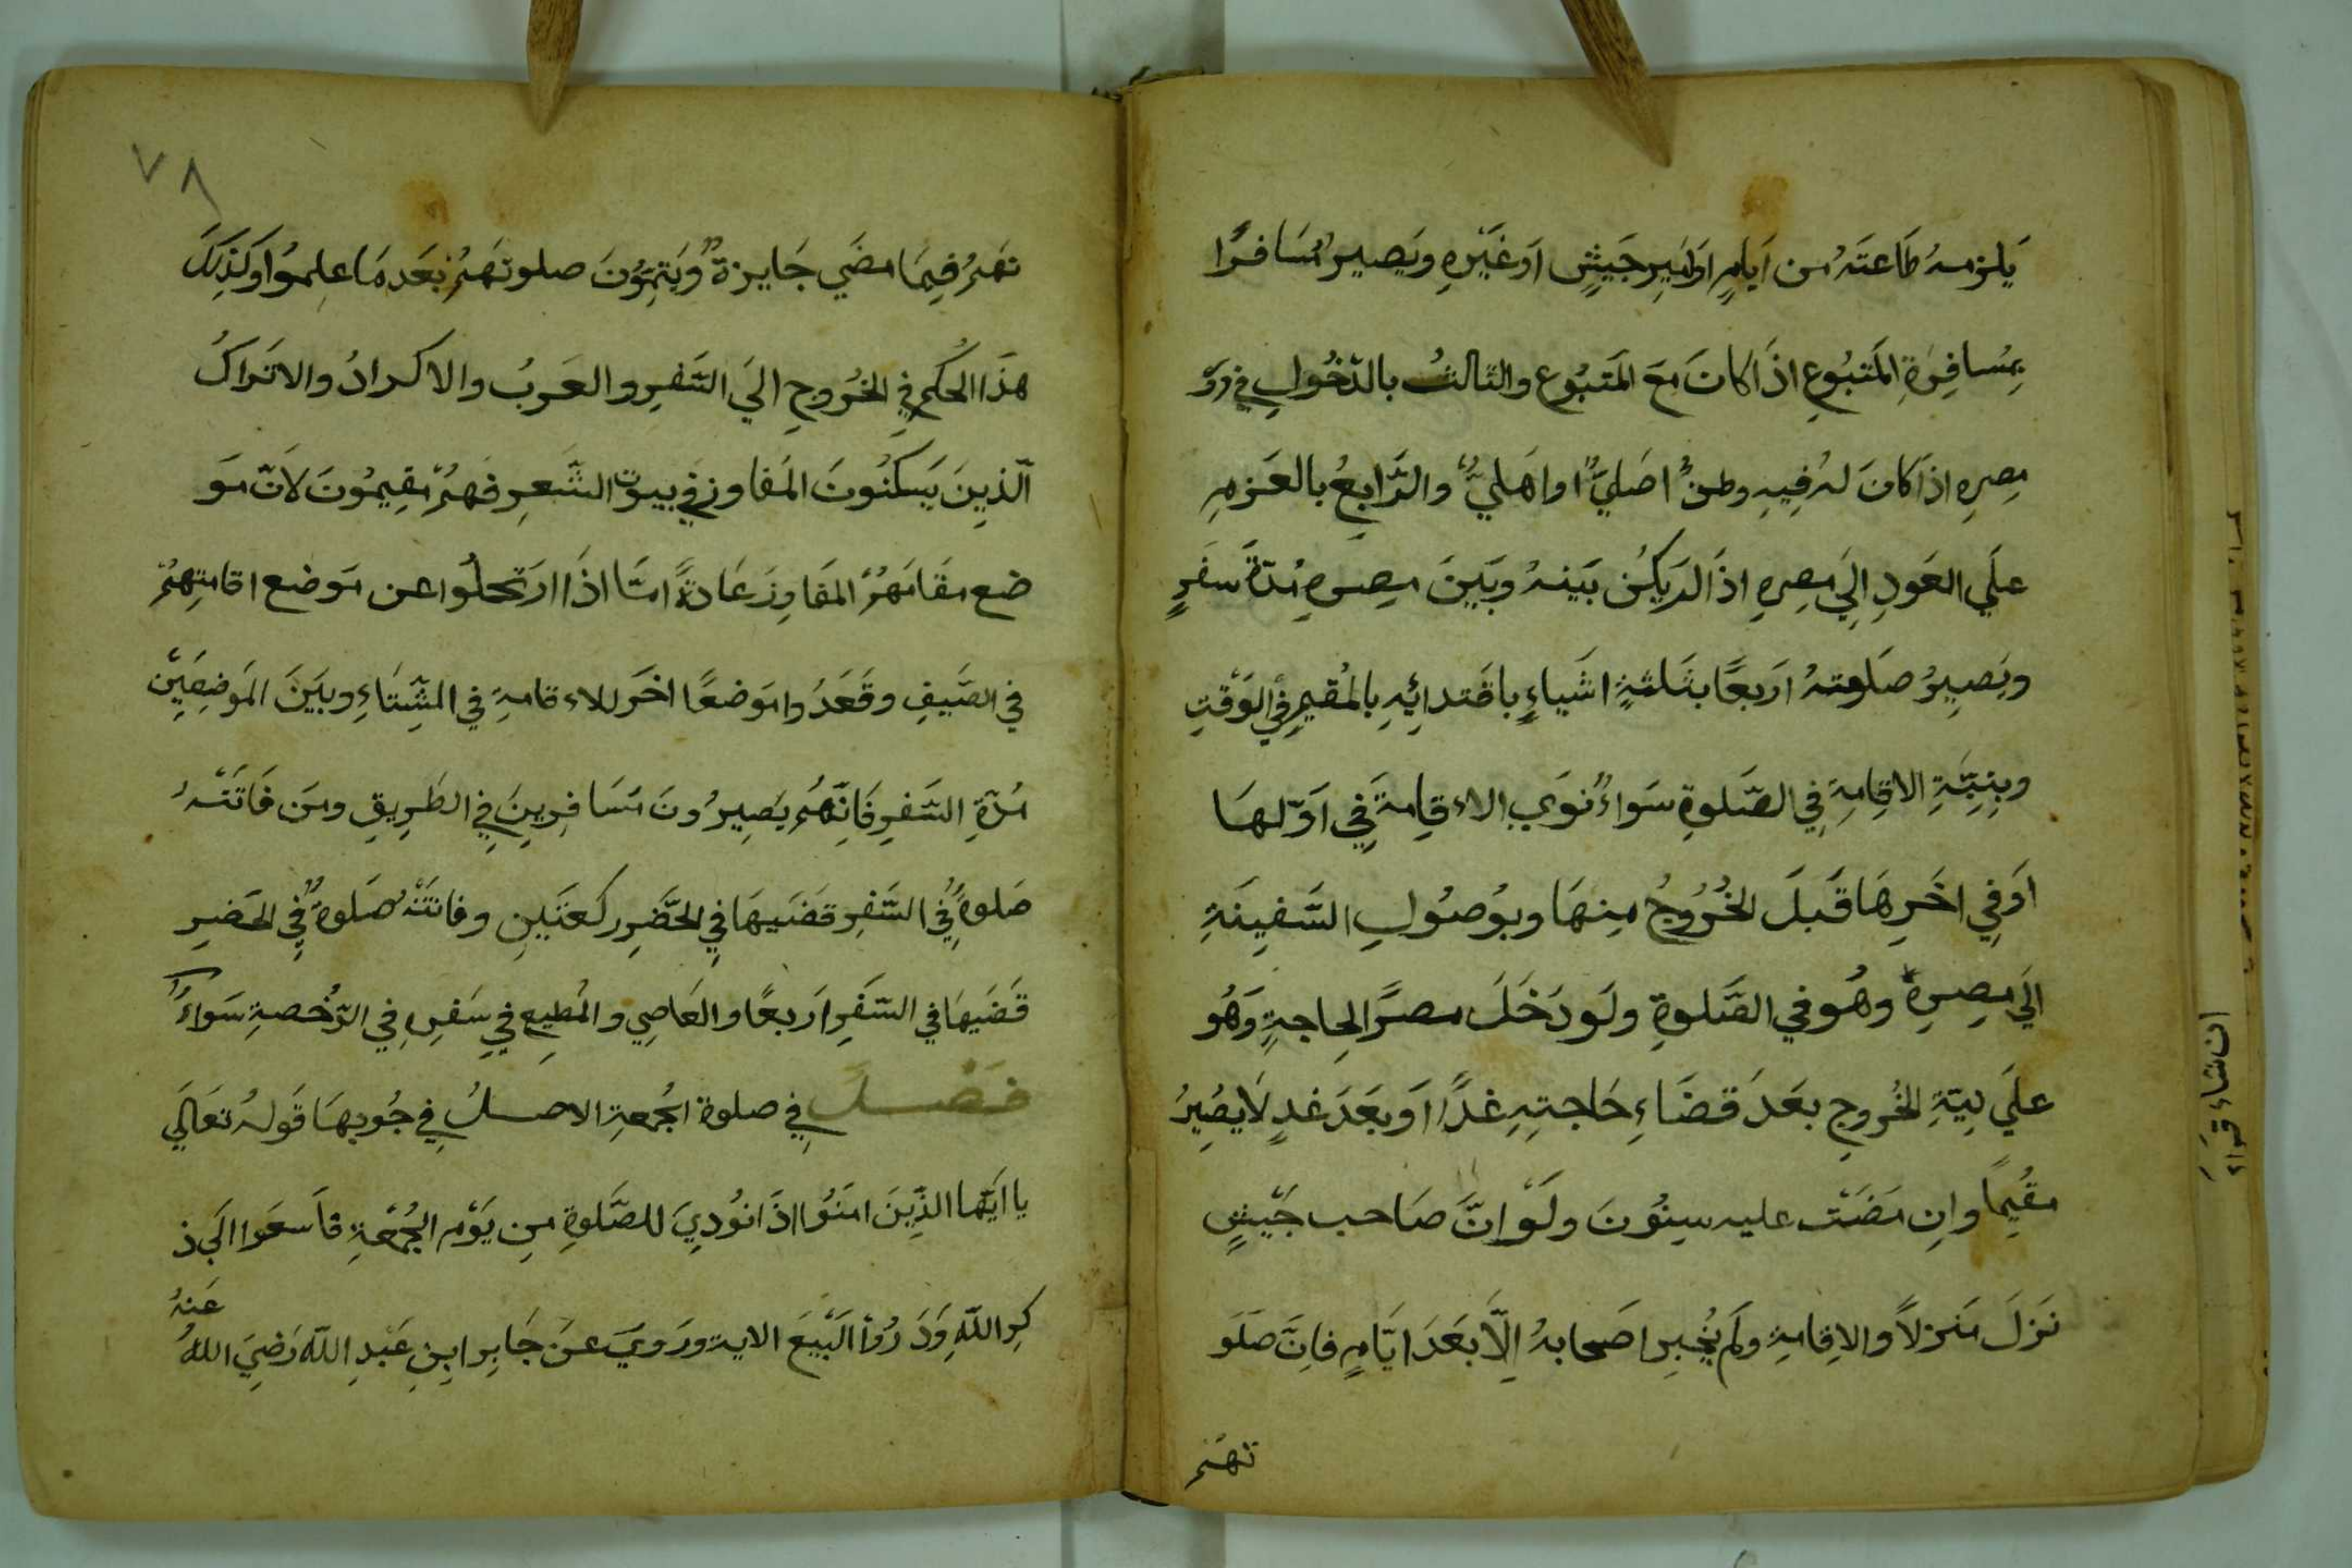 يَلزمهُ طَاعَتَهُ من اَيامٍ اواَمِيرِ جَيشٍ اَوغَيْرِهِ ويَصيرُ مُسَافرًا
بِمُسافِرَةِ المَتبُوعِ اذَا كانَ مَعَ المَتبُوع والثالثُ بالدّخُولِ في
مِصِرهِ اذَا كانَ لهُ فِيهِ وطنٌ اصَليٌّ اواهَليٌّ والرَّابِعُ بالعَزمِ
علَي العَودِ اِلَي مِصِرهِ اذَا لَم يَكُن بَينهُ وبَينَ مِصرهِ مُدّةَ سفَرٍ
ويَصِيرُ صَلوتهُ اَربعًا بثَلثةِ اشَياءٍ باقَتدائِهِ بالمُقيمِ فِي الوَقْتِ
وبِنِيَّةِ الاقِامةِ فِي الصَّلوةِ سَواءٌ نَوَي الاءقِامةَ فِي اَوّلهَا
اَوفِي اخَرِهَا قَبلَ الخُرُوجُ مِنهَا وبوُصُولِ السَّفِينَةِ
اِلَي مِصرِهِ وهُو في الصَّلوةِ ولَو دَخَلَ مصرًا لحِاجةٍ وَهُو
علَي نِيّةِ الخُروجِ بعَدَ قَضَاءِ حَاجتِهِ غدًا اَو بعَدَ غدٍ لَا يصَيِرُ
مقُيِمًا واِن مَضَت عليه سِنُونَ ولَوْ انَّ صَاحب جَيْشٍ
نَزلَ مَنزلاً والاِقامةِ ولَم يُخبِر اصَحابهُ اِلَّا بعَدَ ايَّامٍ فاِنَّ صَلَو
تهُم
٧٨
تهَمُ فِيمَا مضَي جَايزةٌ ويَتِمُّونَ صلوتهَمُ بعَدمَا علِموُا وكَذلِكَ
هذَا الحُكم في الخرُوجِ اليَ السَّفرِ والعَربُ والاكرادُ والاتَراكُ
الّذِينَ يَسكنُونَ المَفاوزِ في بيوت الشَّعرِ فهمُ مقِيمُونَ لاَنّ مَو
ضع مقَامهَمُ المفَاوِزَ عَادةً امَّا اذَا ارتَحلُوا عن مَوضع اقامتِهمُ
في الصَّيفِ وقَعَدُ وا مَوضعًا اخَر للاءقامةِ في الشِّتَاءِ وبيَنَ المَوضِعَيْنِ
مُدّةِ السَّفرِ فَاِنَّهُم يصَيِرُونَ مُسَافِرِينَ فِي الطَرِيقِ ومَن فاَتَتْهُ
صَلوةٌ في السَّفرِ قضَيهَا فِي الحَضَرِ ركعتَينِ وفاتتَهُ صَلوةٌ فِي الحَضرِ
قَضَيهَا في السَّفَرِ اَربعًا والعَاصِي والمُطيِع فِي سَفرِهِ فِي الرُّخصةِ سَواءٌ
فَصل فِي صلوة الجُمعةِ الاصلُ فِي جُوبهَا قَولهُ تعَالَي
يا ايَّها الذِّينَ امَنُوا اذَا نُودِيَ للصَّلوةِ مِن يَوْم الجُمُعَةِ فاَسعَوا اَلَي ذ
كِر اللّهِ وَذَ رُوا الَبْيعَ الاية ورَوِيَ عَن جَابِر ابِنِ عَبْدِ اللّه رَضِيَ اللهُ عَنهُ
ان شاء